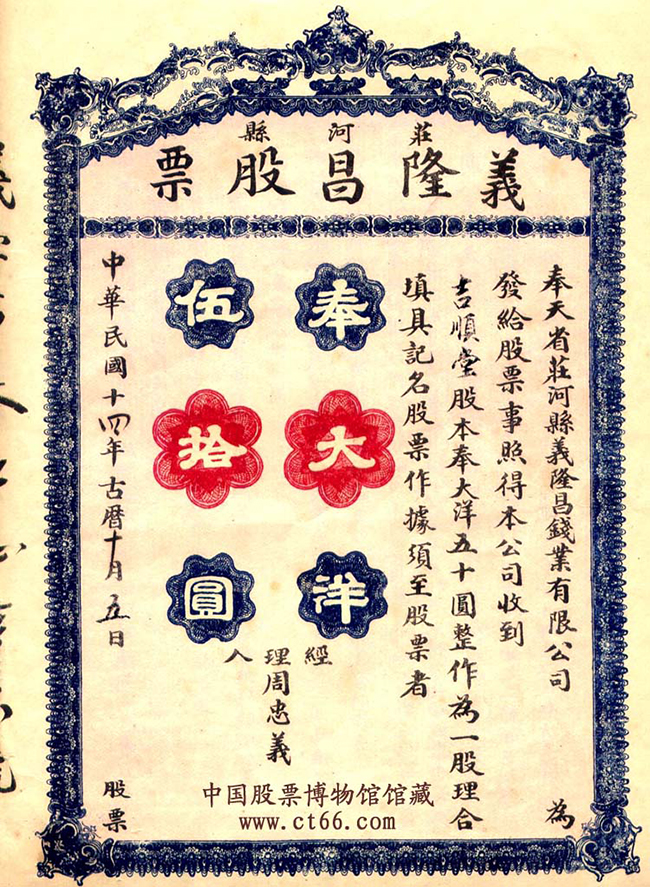 莊河縣
義隆昌股票
奉天省莊河縣義隆昌錢業有限公司 為
發給股票事照得本公司收到
吉順堂股本奉大洋五十圓整作為一股理合
填具記名股票作據須至股票者
奉大洋
伍拾圓
經理人
周忠義
中華民國十四年古曆十月五日
股票
中国股票博物馆馆藏
www.ct66.com